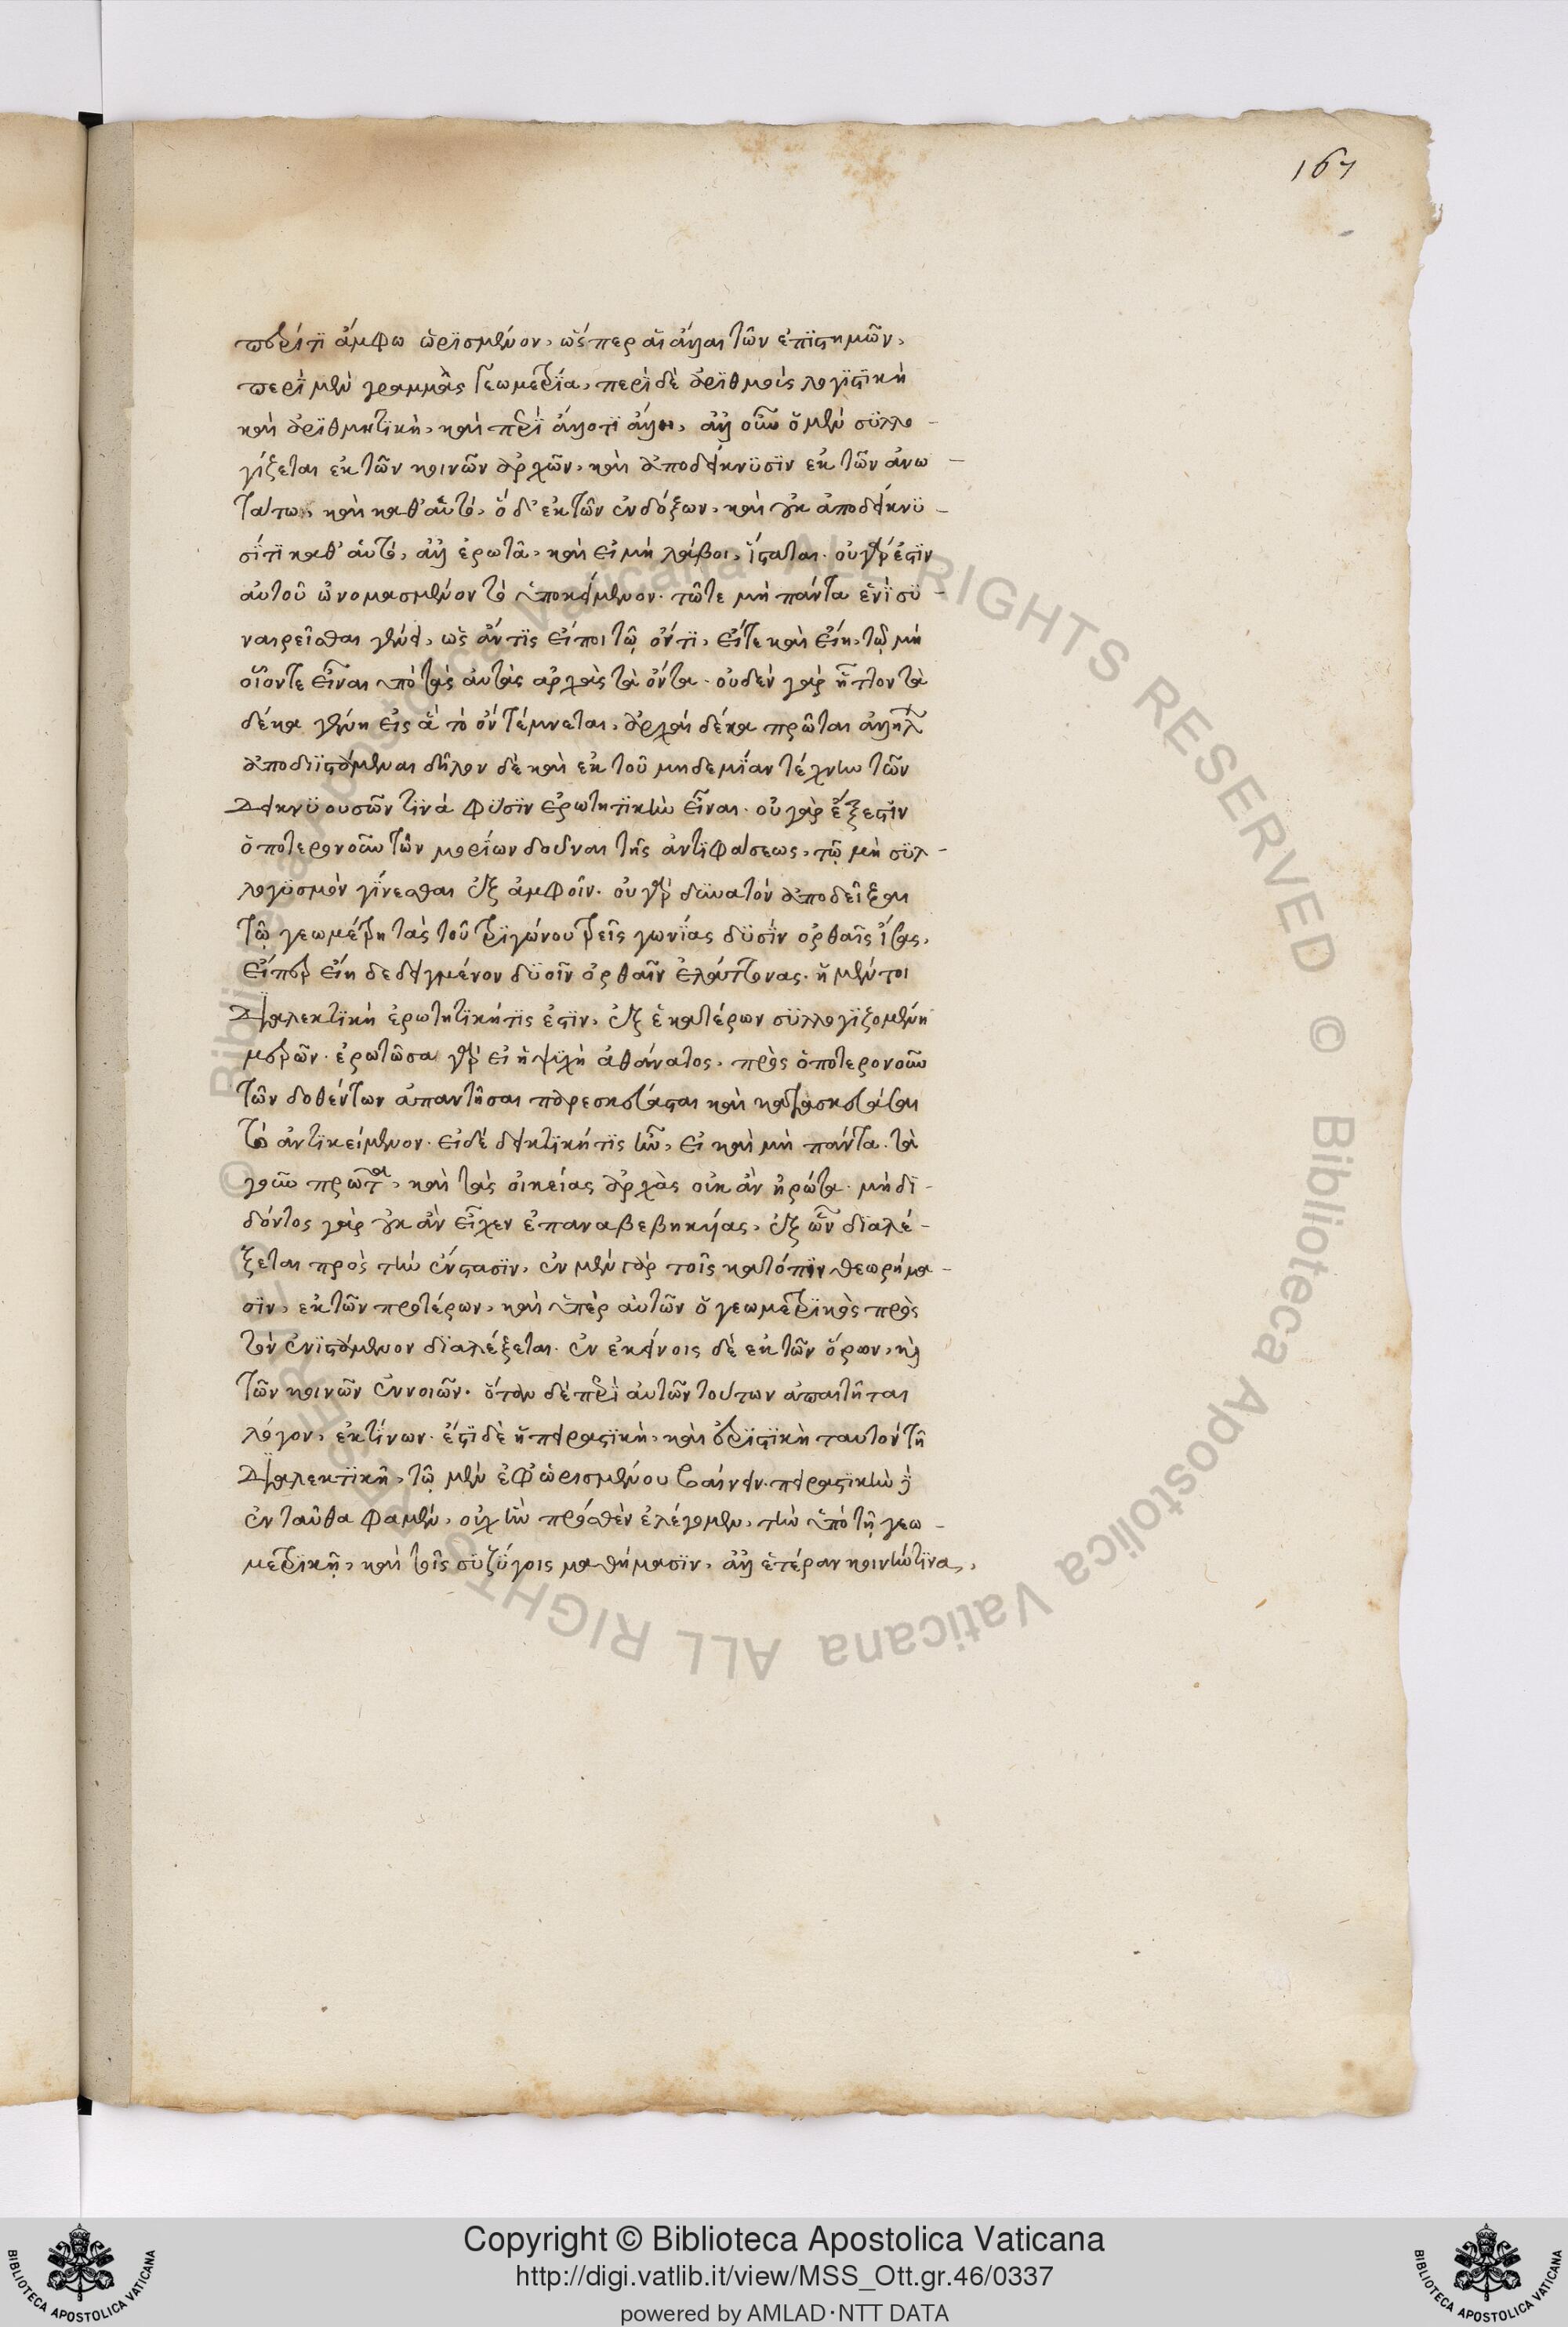 167
περί τι ἄμφω ὡρισμένον, ὥσπερ αἱ ἄλλαι τῶν ἐπιστημῶν,
περὶ μὲν γραμμὰς γεωμετρία, περὶ δὲ ἀριθμοὺς λογιστικὴ
καὶ ἀριθμητικὴ, καὶ περὶ ἄλλο τι ἄλλη, ἀλλ' οὖν ὁ μὲν συλλο-
γίζεται ἐκ τῶν κοινῶν ἀρχῶν, καὶ ἀποδείκνυσιν ἐκ τῶν ἀνω-
τάτω, καὶ καθ' αὑτό, ὁ δ' ἐκ τῶν ἐνδόξων, καὶ οὐκ ἀποδείκνυ-
σί τι καθ' αὑτό, ἀλλ' ἐρωτᾷ, καὶ εἰ μὴ λάβοι, ἵσταται. οὐ γάρ ἐστιν
αὐτοῦ ὠνομασμένον τὸ ὑποκείμενον. τῷ τε μὴ πάντα ἑνὶ συ-
ναιρεῖσθαι γένει, ὡς ἄν τις εἴποι τῷ ὄντι, εἴτε καὶ εἴη, τῷ μὴ
οἷόν τε εἶναι ὑπὸ τὰς αὐτὰς ἀρχὰς τὰ ὄντα. οὐδὲν γὰρ ἧττον τὰ
δέκα γένη εἰς ἃ τὸ ὂν τέμνεται, ἀρχαὶ δέκα πρῶται ἀλλήλ
ἀποδιϊστάμεναι δῆλον δὲ καὶ ἐκ τοῦ μηδεμίαν τέχνην τῶν
δεικνυουσῶν τινὰ φύσιν ἐρωτητικὴν εἶναι. οὐ γὰρ ἔξεστιν
ὁποτερονοῦν τῶν μορίων δοῦναι τῆς ἀντιφάσεως, τῷ μὴ συλ-
λογισμὸν γίνεσθαι ἐξ ἀμφοῖν. οὐ γὰρ δυνατὸν ἀποδεῖξαι
τῷ γεωμέτρῃ τὰς τοῦ τριγώνου τρεῖς γωνίας δυσὶν ὀρθαῖς ἴσας,
εἴπερ εἴη δεδειγμένον δυοῖν ὀρθαῖν ἐλάττονας. ἡ μέντοι
διαλεκτικὴ ἐρωτητική τις ἐστιν, ἐξ ἑκατέρων συλλογιζομένη
μερῶν. ἐρωτῶσα γὰρ εἰ ἡ ψυχὴ ἀθάνατος, πρὸς ὁποτερονοῦν
τῶν δοθέντων ἀπαντῆσαι παρεσκεύασται καὶ κατασκευάσαι
τὸ ἀντικείμενον. εἰ δὲ δεικτική τις ἦν, εἰ καὶ μὴ πάντα. τὰ
γοῦν πρῶτα, καὶ τὰς οἰκείας ἀρχὰς οὐκ ἂν ἠρώτα. μὴ δι-
δόντος γὰρ οὐκ ἂν εἶχεν ἐπαναβεβηκυίας, ἐξ ὧν διαλέ-
ξεται πρὸς τὴν ἔνστασιν, ἐν μὲν γὰρ τοῖς κατόπιν θεωρήμα-
σιν, ἐκ τῶν προτέρων, καὶ ὑπὲρ αὐτῶν ὁ γεωμετρικὸς πρὸς
τὸν ἐνιστάμενον διαλέξεται. ἐν ἐκείνοις δὲ ἐκ τῶν ὅρων, καὶ
τῶν κοινῶν ἐννοιῶν. ὅταν δὲ περὶ αὐτῶν τούτων ἀπαιτῆται
λόγον, ἐκ τίνων. ἔστι δὲ ἡ πειραστικὴ, καὶ ἐριστικὴ ταυτὸν τῇ
διαλεκτικῇ, τῷ μὲν ἐφ' ὡρισμένου βαίνειν. πειραστικὴν
ἐνταῦθα φαμὲν, οὐχ ἣν πρόσθεν ἐλέγομεν, τὴν ὑπὸ τῇ γεω-
μετρικῇ, καὶ τοῖς συζύγοις μαθήμασιν, ἀλλ' ἑτέραν κοινήν τινα,
© Biblioteca Apostolica Vaticana ALL RIGHTS RESERVED © Biblioteca Apostolica Vaticana ALL RIGHTS RESERVED
BIBLIOTECA APOSTOLICA VATICANA
Copyright © Biblioteca Apostolica Vaticana
http://digi.vatlib.it/view/MSS_Ott.gr.46/0337
powered by AMLAD·NTT DATA
BIBLIOTECA APOSTOLICA VATICANA